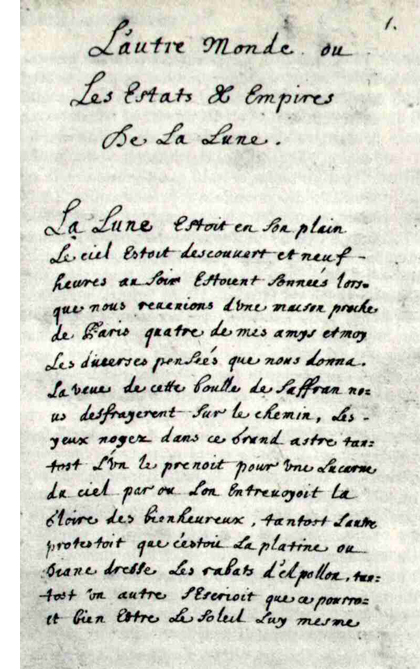 1.
L'autre Monde ou
Les Estats & Empires
De La Lune.
La Lune Estoit en son plain
Le ciel Estoit descouvert et neuf
heures au soir Estoient sonneés lors-
que nous revenions d'vne maison proche
de Paris quatre de mes amys et moy
Les diverses penseés que nous donna
La veue de cette boulle de saffran no=
us desfrayerent sur le chemin, Les
yeux noyez dans ce Grand astre tan=
tost L'vn le prenoit pour vne Lucarne
du ciel par ou L'on Entrevoyoit la
Gloire des bienheureux, tantost L'autre
protestoit que c'estoit La platine ou
Diane dresse Les rabats d'Apollon, tan=
tost vn autre s'Escrioit que ce pourro=
it bien Estre Le soleil Luy mesme